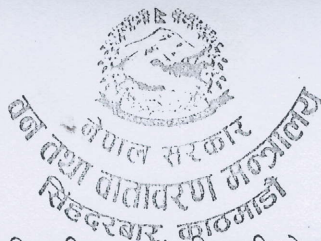 नेपाल सरकार
वन तथा वातावरण मन्त्रालय
सिंहदरबार, काठमाडौं